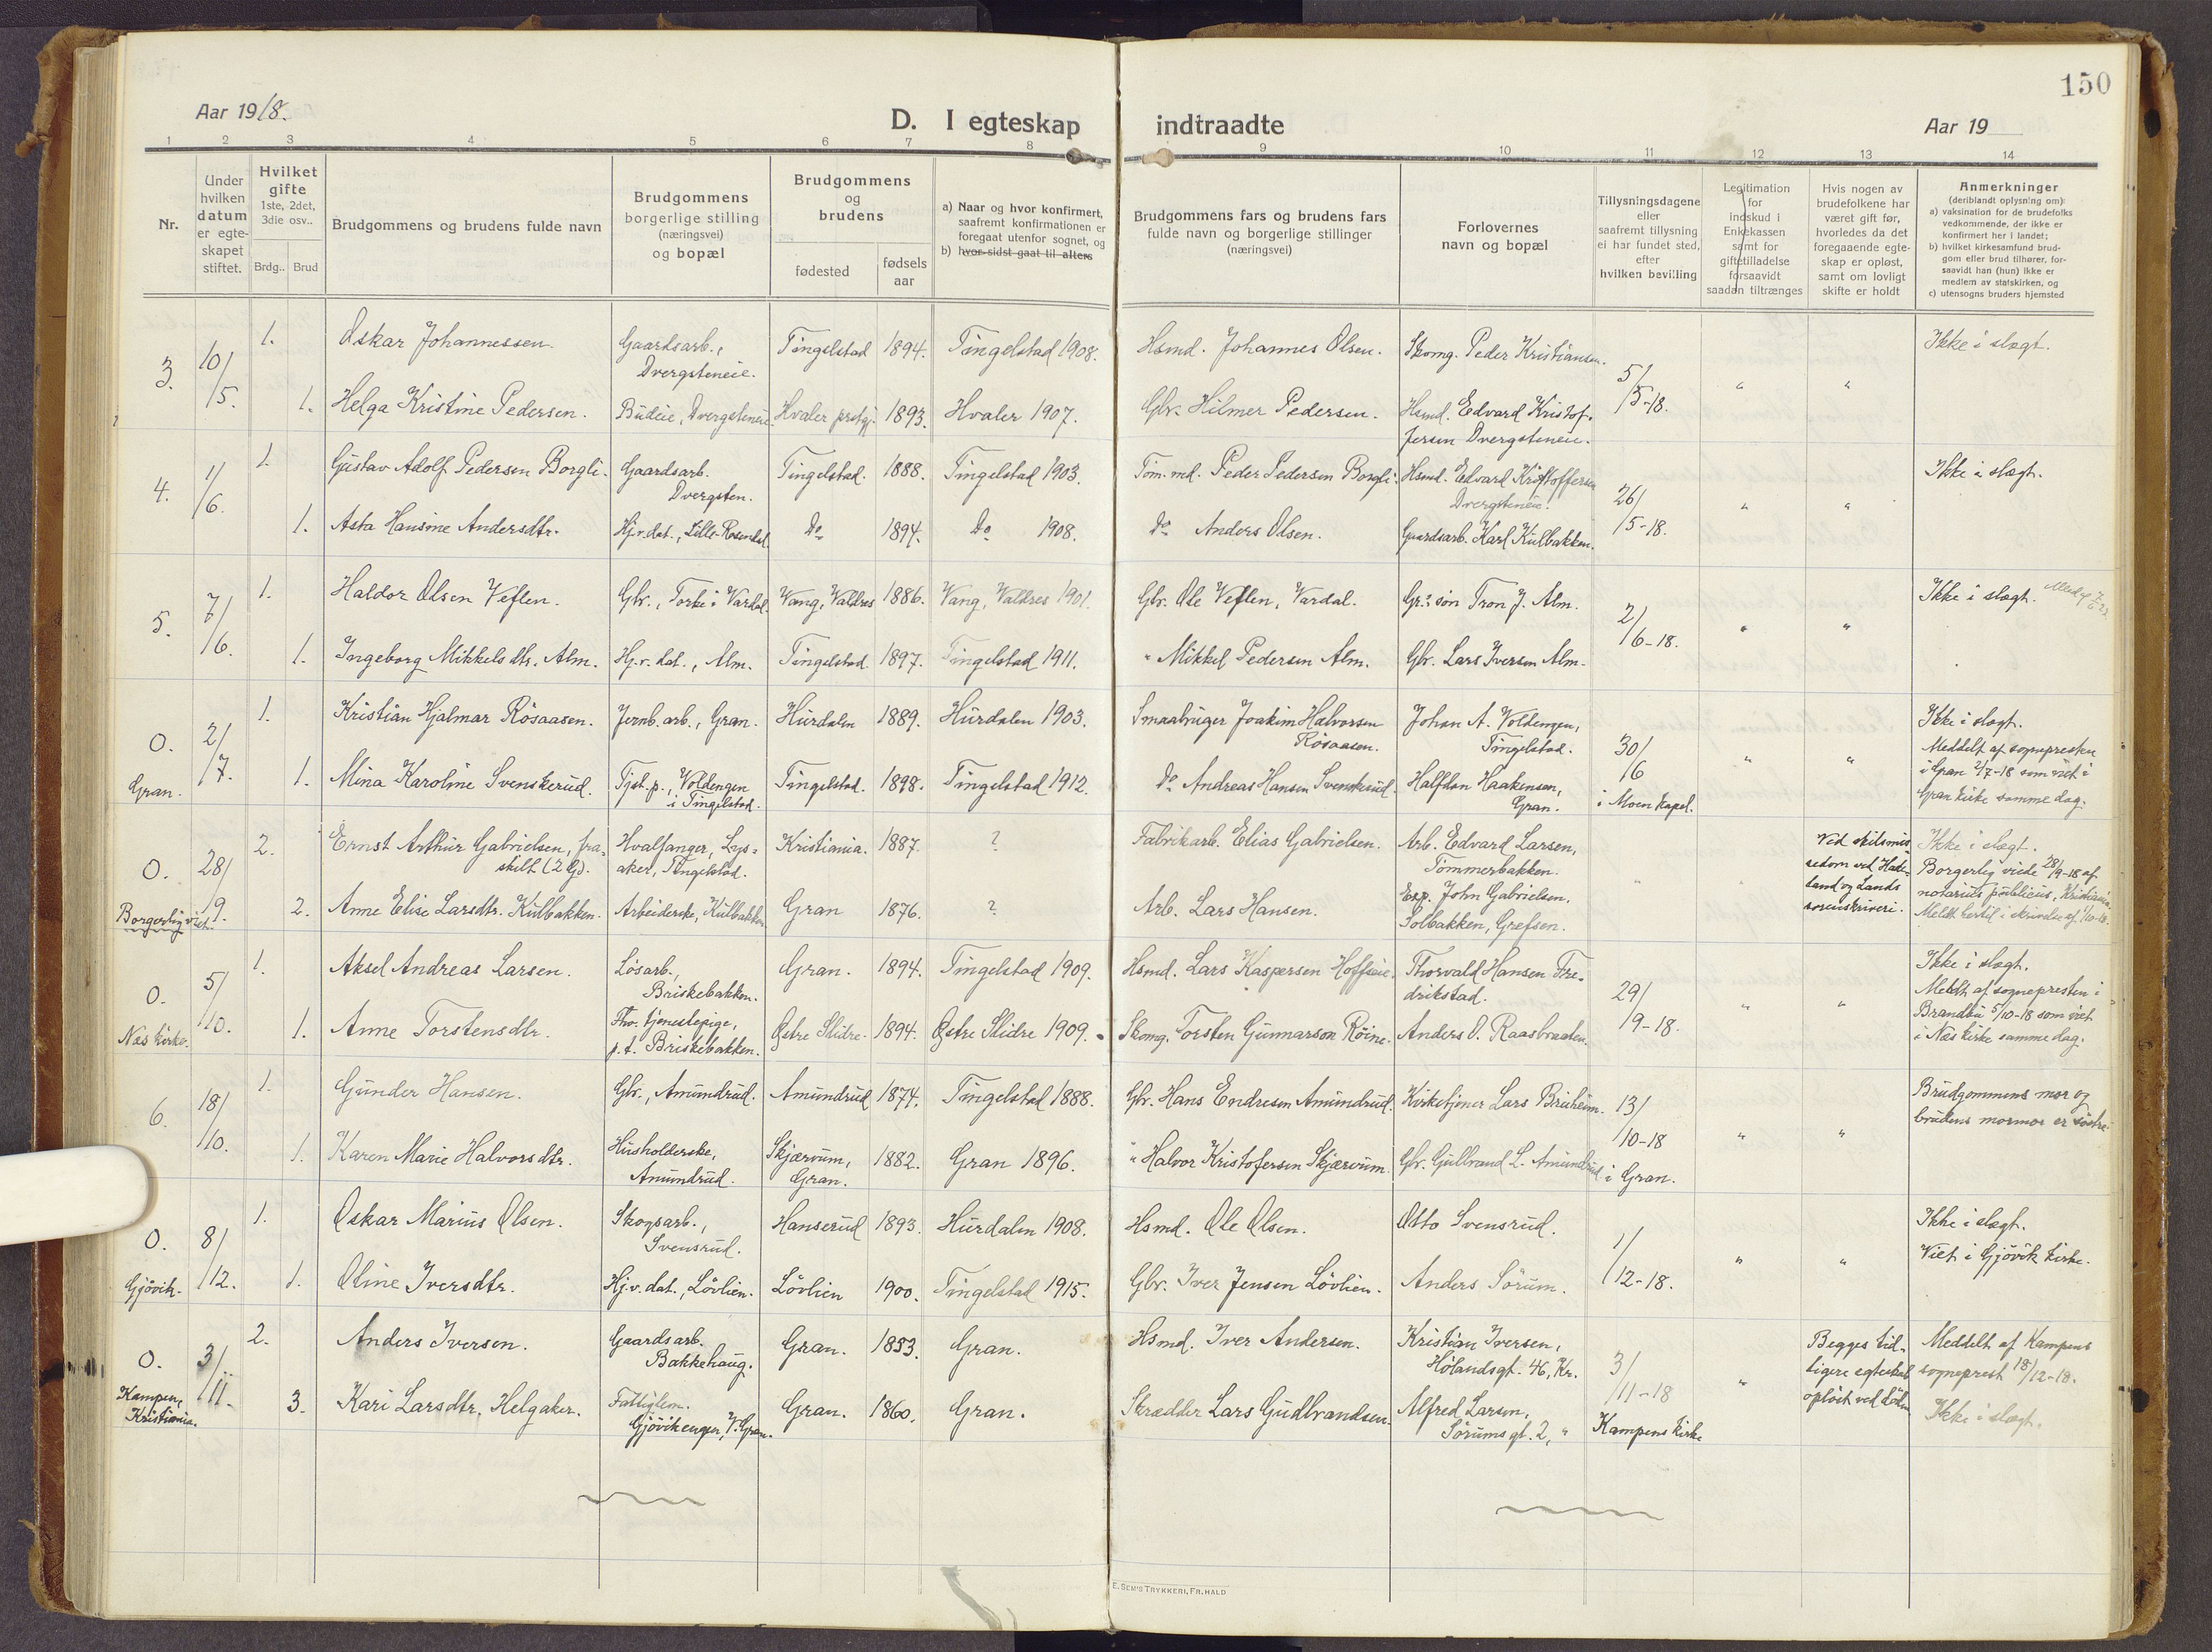 150
Aar 1918.
D. I egteskap indtraadte
Aar 19
1 2 3 4 5 6 7 8 9 10 11 12 13 14
Nr.
Under hvilken datum er egteskapet stiftet.
Hvilket gifte 1ste, 2det, 3die osv..
Brdg.. Brud
Brudgommens og brudens fulde navn
Brudgommens borgerlige stilling (næringsvei) og bopæl
Brudgommens og brudens
fødested
fødsels aar
a) Naar og hvor konfirmert, saafremt konfirmationen er foregaat utenfor sognet, og
b) hvor sidst gaat til alters
Brudgommens fars og brudens fars fulde navn og borgerlige stillinger (næringsvei)
Forlovernes navn og bopæl
Tillysningsdagene eller saafremt tillysning ei har fundet sted, efter hvilken bevilling
Legitimation for indskud i Enkekassen samt for giftetilladelse forsaavidt saadan tiltrænges
Hvis nogen av brudefolkene har været gift før, hvorledes da det foregaaende egteskap er opløst, samt om lovligt skifte er holdt
Anmerkninger (deriblandt oplysning om):
a) vaksination for de brudefolks vedkommende, der ikke er konfirmert her i landet;
b) hvilket kirkesamfund brudgom eller brud tilhører, forsaavidt han (hun) ikke er medlem av statskirken, og
c) utensogns bruders hjemsted
3. 10/5. 1. Oskar Johannessen. Gaardsarb., Dvergsteneie. Tingelstad 1894. Tingelstad 1908. Hsmd. Johannes Olsen. Skomg. Peder Kristiansen. 5/5-18. " " Ikke i slægt.
1. Helga Kristine Pedersen. Budeie, Dvergsteneie. Hvaler prstgj. 1893. Hvaler 1907. Gbr. Hilmer Pedersen. Hsmd. Edvard Kristoffersen Dvergsteneie.
4. 1/6. 1. Gustav Adolf Pedersen Borgli. Gaardsarb. Dvergsten. Tingelstad. 1888. Tingelstad 1903. Töm.md. Peder Pedersen Borgli. Hsmd. Edvard Kristoffersen Dvergsteneie. 26/5-18. " " Ikke i slægt.
1. Asta Hansine Andersdtr. Hj.v.dat., Lille-Rosendal. Do 1894. Do 1908. Do Anders Olsen. Gaardsarb. Karl Kulbakken.
5. 7/6. 1. Haldor Olsen Veflen. Gbr., Torke i Vardal. Vang, Valdres 1886. Vang, Valdres 1901. Gbr. Ole Veflen, Vardal. Gr.sön Tron J. Alm. 2/6-18. " " Ikke i slægt.
1. Ingeborg Mikkelsdtr. Alm. Hj.v.dat., Alm. Tingelstad 1897. Tingelstad 1911. " Mikkel Pedersen Alm. Gbr. Lars Iversen Alm.
O. Gran. 2/7. 1. Kristian Hjalmar Rösaasen. Jernb.arb., Gran. Hurdalen 1889. Hurdalen 1903. Smaabruger Joakim Halvorsen Rösaasen. Johan A. Voldengen, Tingelstad. 30/16 i Moen kapel. " " Ikke i slægt. Meddelt af sognepresten i Gran 2/7-18 som viet i Gran kirke samme dag.
1. Mina Karoline Svenskerud. Tjst.p., Voldengen i Tingelstad. Tingelstad. 1898. Tingelstad 1912. Do Andreas Hansen Svenskerud. Halfdan Haakensen, Gran.
O. Borgerlig viet. 28/9. 2. Ernst Arthur Gabrielsen, fraskilt (2 G). Hvalfanger, Lysaker, Tingelstad. Kristiania. 1887. ? Fabrikarb. Elias Gabrielsen. Arb. Edvard Larsen, Tömmerbakken. " Ved skilsmissedom ved Hadeland og Lands sorenskriveri. Ikke i slægt. Borgerlig viede 28/9-18 af notarius publicus, Kristiania. Meldt hertil i skrivelse af 1/10-18.
2. Anne Elise Larsdtr. Kulbakken. Arbeiderske, Kulbakken Gran 1876. ? Arb. Lars Hansen. Exp. John Gabrielsen. Solbakken, Grefsen.
O. Næs kirke. 5/10. 1. Aksel Andreas Larsen. Lösarb., Briskebakken. Gran. 1894. Tingelstad 1909. Hsmd. Lars Kaspersen Hoffseie. Thorvald Hansen Fredrikstad. 29/9-18. " " Ikke i slægt. Meldt af sognepresten i Brandbu 5/10-18 som viet i Næs kirke samme dag.
1. Anne Torstensdtr. Fhv. tjenestepige, p.t. Briskebakken. Østre Slidre 1894. Østre Slidre 1909. Skomg. Torsten Gunnarson Röine. Anders O. Raasbraaten.
6. 18/10. 1. Gunder Hansen. Gbr., Amundrud. Amundrud 1874. Tingelstad 1888. Gbr. Hans Endresen Amundrud. Kirketjener Lars Bruheim. 13/10-18 i Gran. " " Brudgommens mor og brudens mormor er söstre.
1. Karen Marie Halvorsdtr. Husholderske, Amundrud. Skjærvum, Gran. 1882. Gran 1896. " Halvor Kristofersen Skjærvum. Gbr. Gulbrand L. Amundrud
O. Gjövik. 8/12. 1. Oskar Marius Olsen. Skogsarb., Svensrud. Hanserud 1893. Hurdalen 1908. Hsmd. Ole Olsen. Otto Svensrud. 1/12-18. " " Ikke i slægt. Viet i Gjövik kirke.
1. Oline Iversdtr. Hj.v.dat., Lövlien. Lövlien 1900. Tingelstad 1915. Gbr. Iver Jensen Lövlien. Anders Sörum.
O. Kampen, Kristiania. 3/11. 2. Anders Iversen. Gaardsarb. Bakkehaug. Gran. 1853. Gran. Hsmd. Iver Andersen. Kristian Iversen, Hölandsgt. 46, Kr. 3/11-18 Kampens kirke " Begges tidligere egteskab oplöst ved döden Meddelt af Kampens sogneprest 18/12-18. Ikke i slægt.
3. Kari Larsdtr. Helgaker. Fattiglem. Gjövikengen, V. Gran. Gran. 1860. Gran. Skrædder Lars Gudbrandsen. Alfred Larsen, Sörumsgt. 2, "
E. SEM'S TRYKKERI, FR.HALD